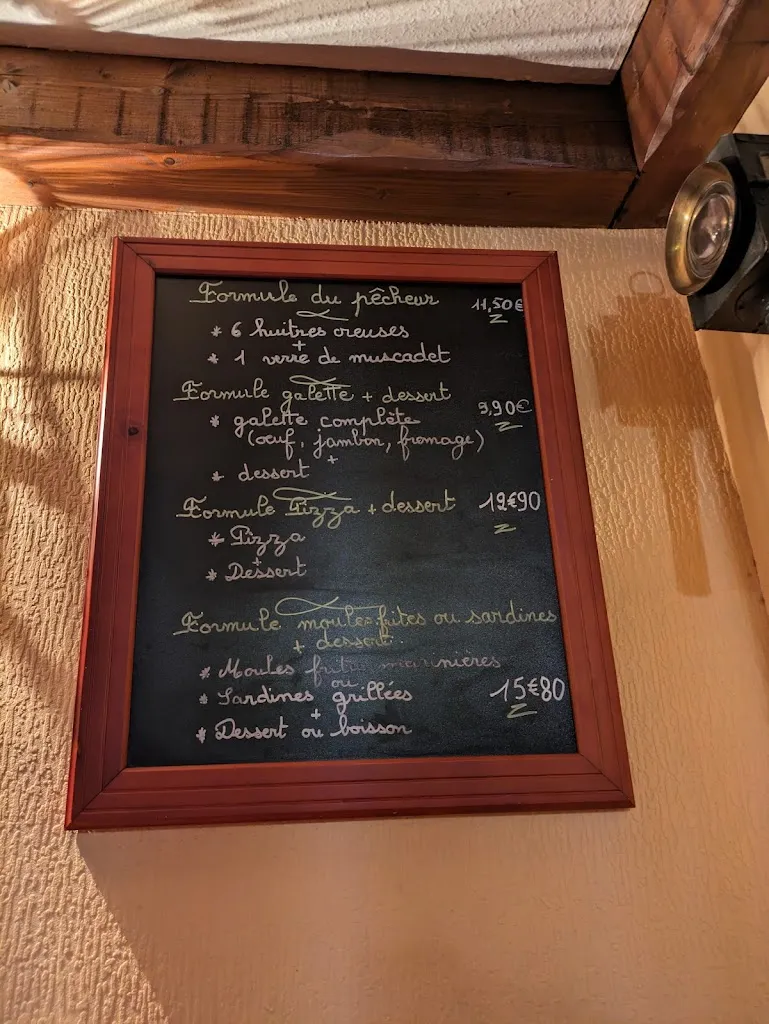 Formule du pêcheur 11,50€
* 6 huitres creuses
+
* 1 verre de muscadet
Formule galette + dessert 9,90€
* galette complète
(œuf, jambon, fromage)
+
* dessert
Formule Pizza + dessert 12€90
* Pizza
+
* Dessert
Formule moules frites ou sardines
+ dessert
* Moules frites marinières
ou
* Sardines grillées 15€80
+
* Dessert ou boisson